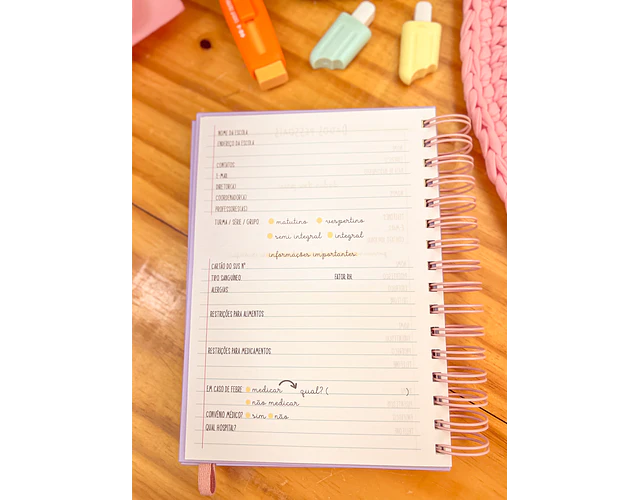 NOME DA ESCOLA
ENDEREÇO DA ESCOLA
CONTATOS:
E-MAIL
DIRETOR(A)
COORDENADOR(A)
PROFESSORES(AS)
TURMA / SÉRIE / GRUPO matutino vespertino
semi integral integral
informações importantes
CARTÃO DO SUS Nº
TIPO SANGUÍNEO FATOR RH.
ALERGIAS
RESTRIÇÕES PARA ALIMENTOS
RESTRIÇÕES PARA MEDICAMENTOS
EM CASO DE FEBRE medicar qual? ( )
não medicar
CONVÊNIO MÉDICO? sim não
QUAL HOSPITAL?